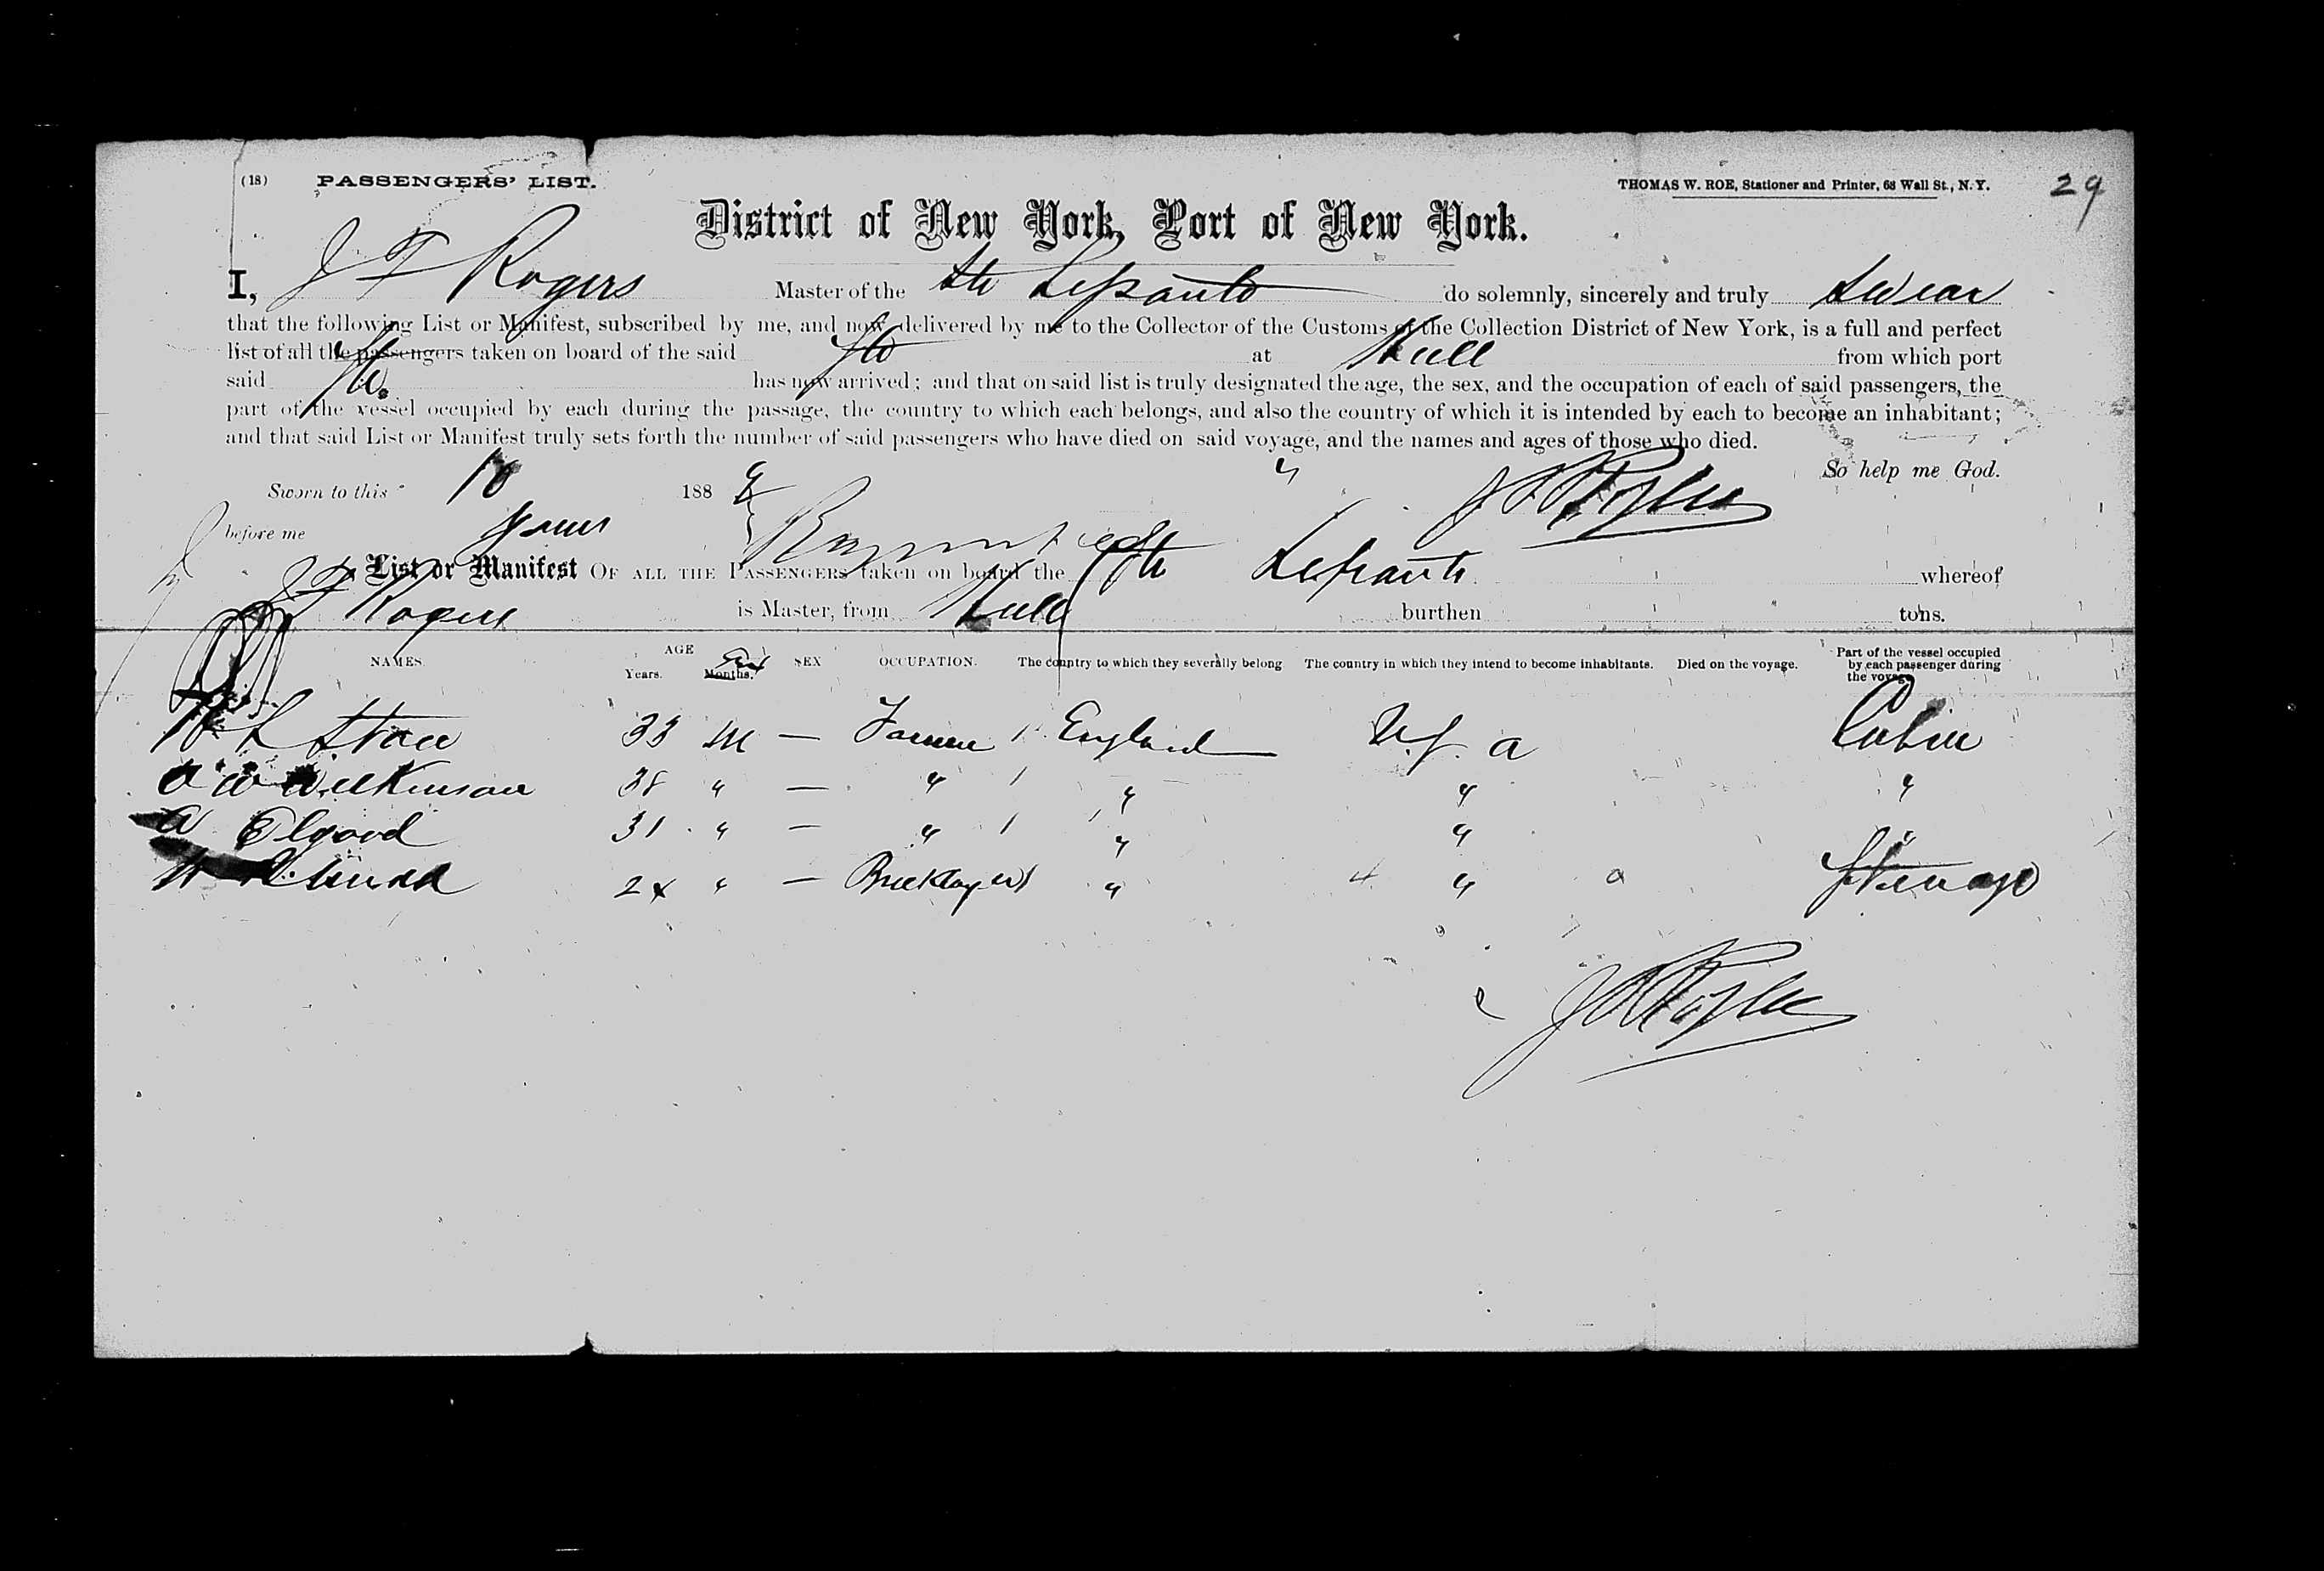 (18) PASSENGERS' LIST. THOMAS W. ROE, Stationer and Printer, 68 Wall St., N. Y. 29
District of New York, Port of New York.
I, J F Rogers Master of the Str Lepanto do solemnly, sincerely and truly Swear
that the following List or Manifest, subscribed by me, and now delivered by me to the Collector of the Customs of the Collection District of New York, is a full and perfect
list of all the passengers taken on board of the said Str at Hull from which port
said Str has now arrived; and that on said list is truly designated the age, the sex, and the occupation of each of said passengers, the
part of the vessel occupied by each during the passage, the country to which each belongs, and also the country of which it is intended by each to become an inhabitant;
and that said List or Manifest truly sets forth the number of said passengers who have died on said voyage, and the names and ages of those who died.
So help me God.
Sworn to this 10 188 J F Rogers
before me
List or Manifest OF ALL THE PASSENGERS taken on board the Str Lepanto whereof
J F Rogers is Master, from Hull burthen tons.
NAMES. AGE Years. Months. SEX OCCUPATION. The country to which they severally belong The country in which they intend to become inhabitants. Died on the voyage. Part of the vessel occupied by each passenger during the voyage
33 M — Farmer 1 England U.S. a Cabin
Wilkinson 38 " — " 1 " " "
A Elgood 31 " — " 1 " " "
24 " — Bricklayer 1 " " Steerage
J F Rogers